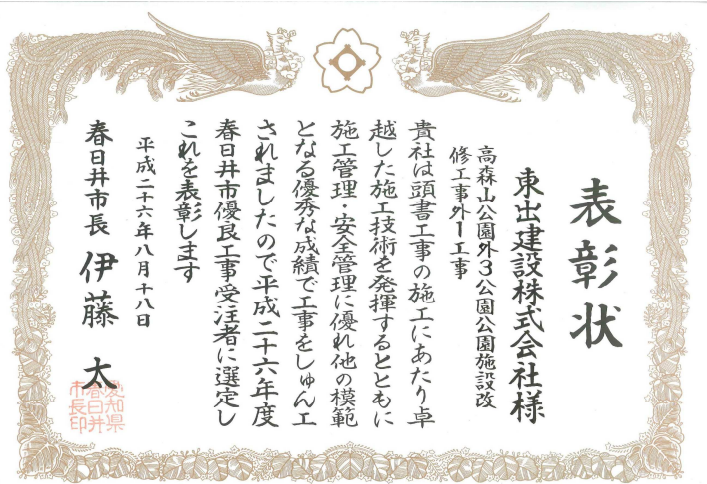 表彰状
東出建設株式会社様
高森山公園外3公園公園施設改
修工事外1工事
貴社は頭書工事の施工にあたり卓
越した施工技術を発揮するとともに
施工管理・安全管理に優れ他の模範
となる優秀な成績で工事をしゅん工
されましたので平成二十六年度
春日井市優良工事受注者に選定し
これを表彰します
平成二十六年八月十八日
春日井市長 伊藤 太
愛知県
春日井
市長印